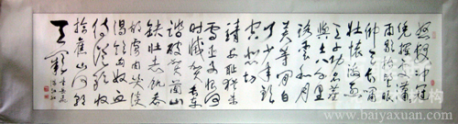 怒髮冲
冠憑欄處瀟
瀟雨歇抬望眼
仰天長嘯
壯懷激烈
三十功名塵
與土八千里
路雲和月
莫等閒白
了少年頭
空悲切
靖康恥猶未
雪臣子恨何
時滅駕長車
踏破賀蘭山
缺壯志飢餐
胡虜肉笑談
渴飲匈奴血
待從頭收
拾舊山河朝
天闕
www.baiyaxuan.com